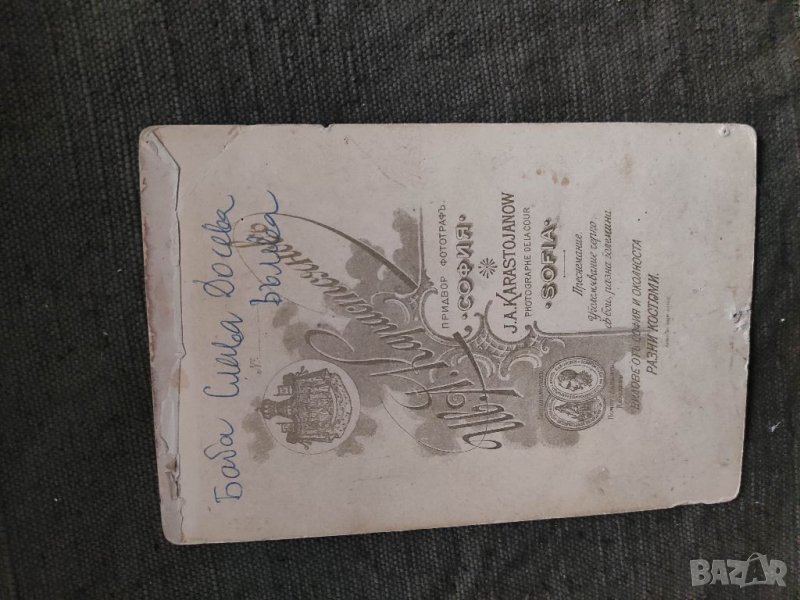 Баба Слава Досева
Вълева
№
Ив. А. Карастояновъ
ПРИДВОР. ФОТОГРАФЪ.
·СОФИЯ·
J.A. KARASTOJANOW
PHOTOGRAPHE DE LA COUR
·SOFIA·
Преснемание.
Уголемявание черно
и бои, разна големина
ВИДОВЕ ОТЪ СОФИЯ И ОКОЛНОСТА
РАЗНИ КОСТЮМИ.
BAZAR